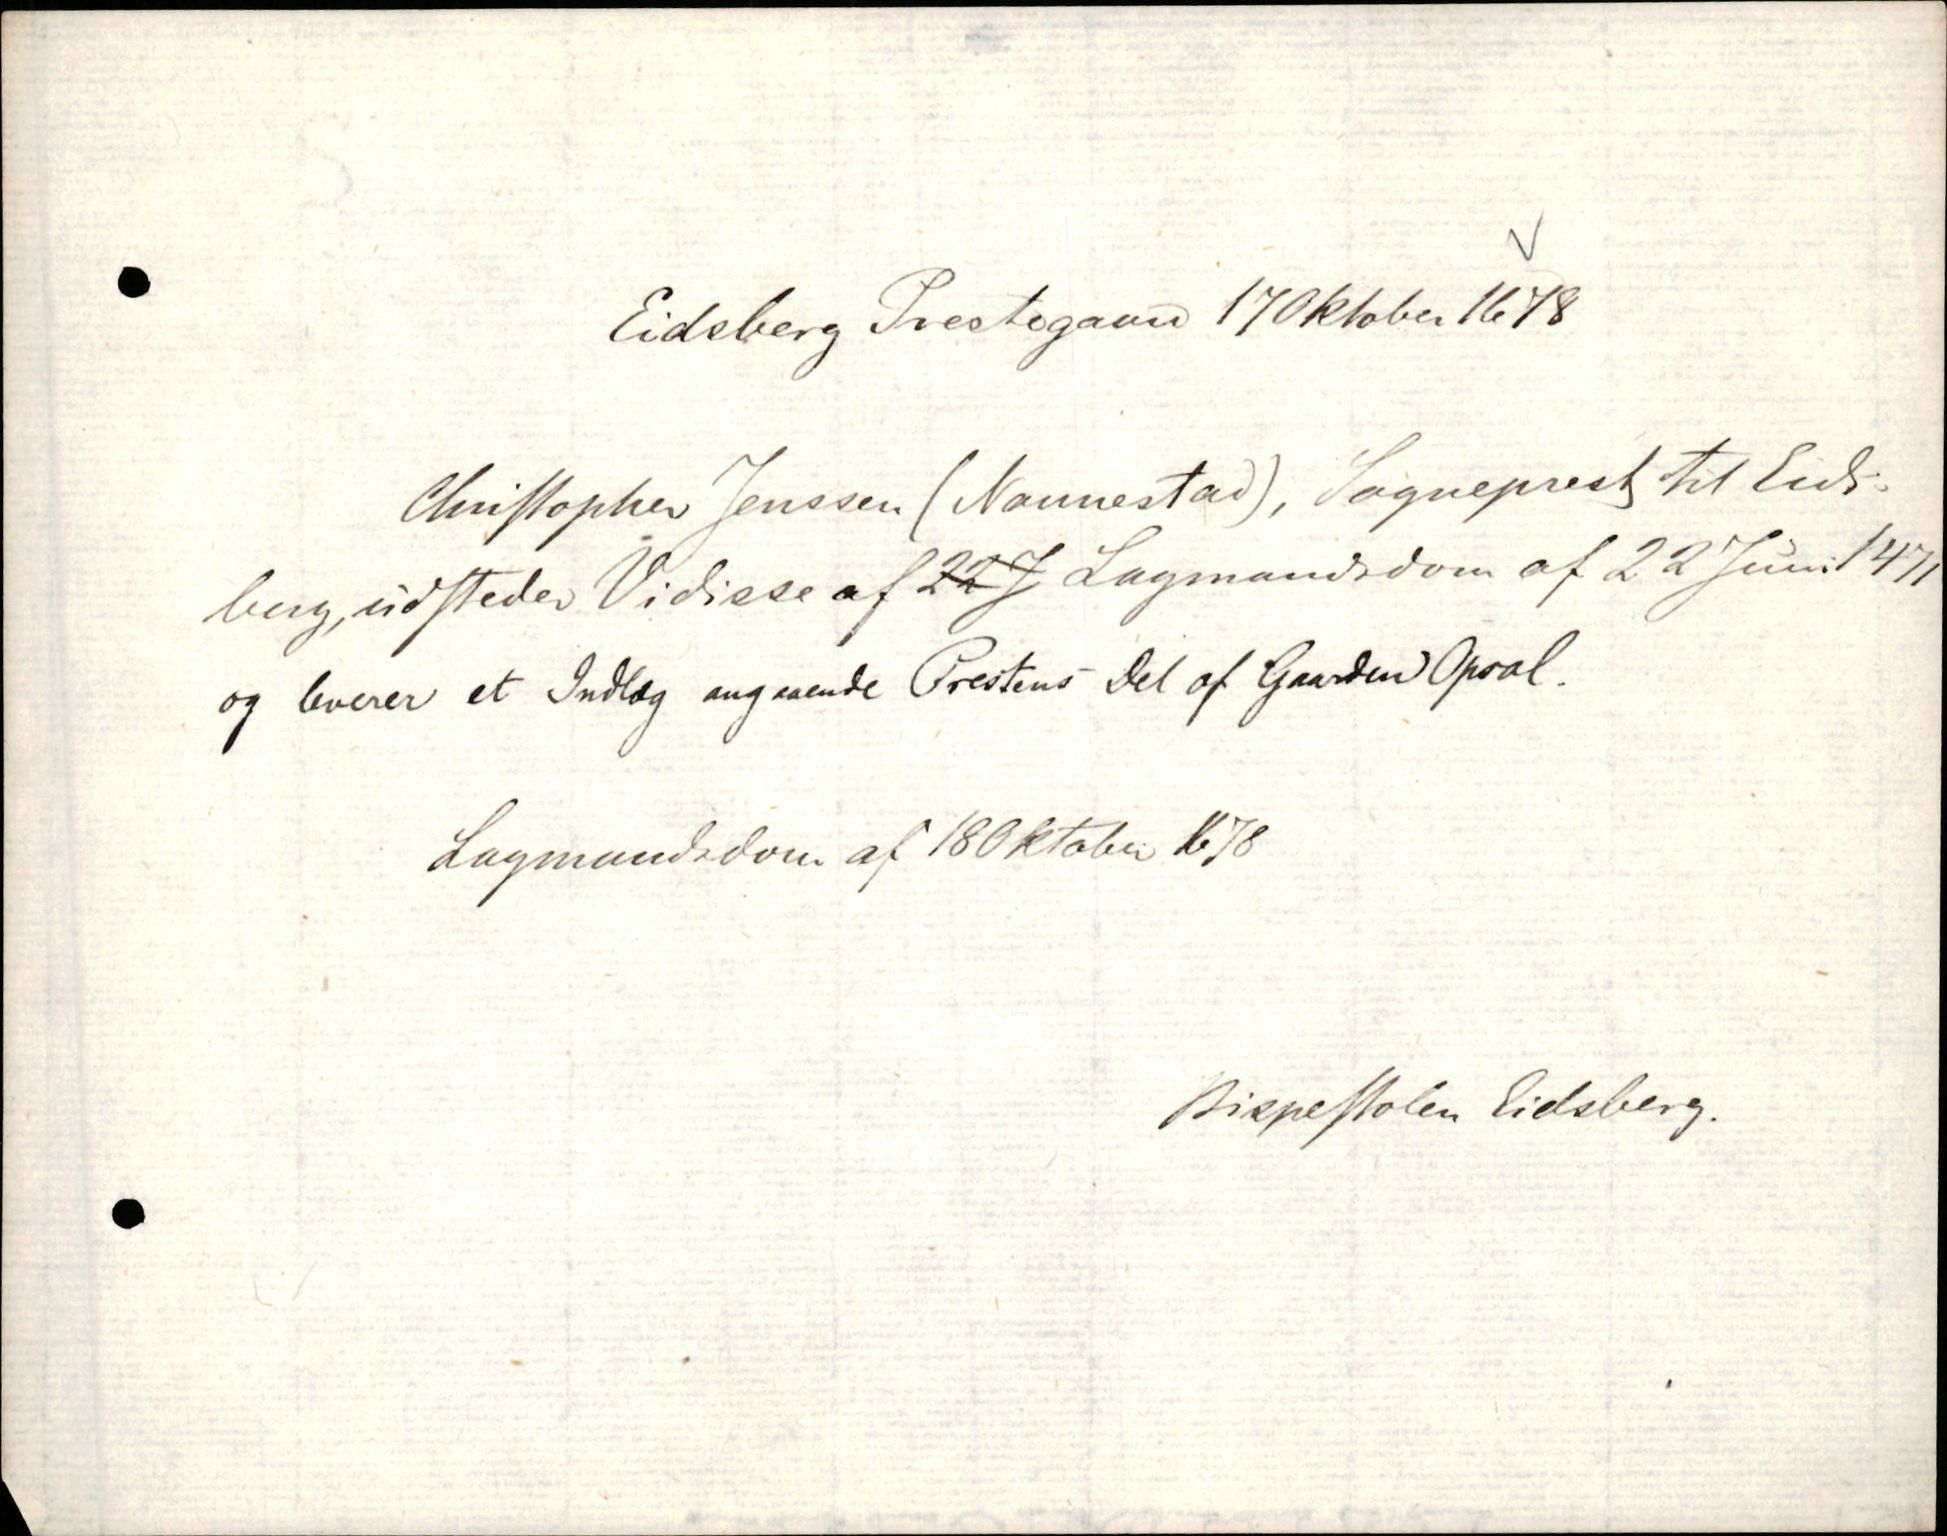 Eidsberg Prestegaard 17 Oktober 1678
Christopher Jenssen (Nannestad), Sogneprest til Eids-
berg, udsteder Vidisse af 22 J Lagmandsdom af 22 Juni 1471
og leverer et Indlæg angaaende Prestens Del af Gaarden Opsal.
Lagmandsdom af 18 Oktober 1678
Bispestolen Eidsberg.